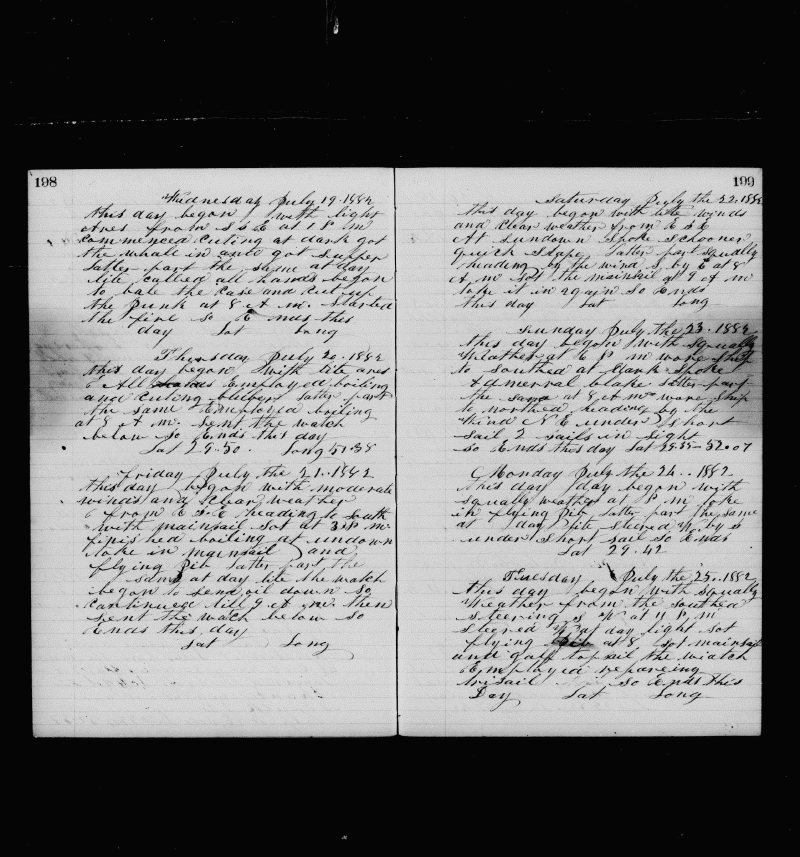 198
Wednesday July 19. 1882
this day began with light
ares from S S E at 1 P M
commenced cuting at dark got
the whale in and got supper
latter part the same at day
lite called all hands began
to bale the case and cut up
the Junk at 8 A M. Started
the fire so Ends this
day Lat Long
Thursday July 20. 1882
this day began with lite ares
E All hands Employed boiling
and cuting blubber latter part
the same Employed boiling
at 8 A M. sent the watch
below so Ends this day
Lat 29.50. Long 51.38
Friday July the 21. 1882
this day began with moderate
winds and clear weather
from E S E heading to south
with mainsail sot at 3 P M
finished boiling at undown
toke in mainsail and
flying Jib latter part the
same at day lite the watch
began to send oil down so
continued till 9 A M then
sent the wach below so
Ends this day
Lat Long
199
Saturday July the 22. 1882
this day began with lite winds
and clear weather from E S E
At sundown spoke schooner
quick Step latter part squally
heading by the wind S by E at 8
A M sot the mainsail at 9 A M
toke it in again so Ends
this day Lat Long
Sunday July the 23. 1882
this day began with squally
Weather at 6 P M wore ship
to southed at dark spoke
Admerral blake latter part
the same at 8 A M wore ship
to northed heading by the
Wind N E under short
sail 2 sails in sight
so Ends this day Lat 29.35 - 52.07
Monday July the 24. 1882
this day day began with
squally weather at 1 P M toke
in flying Jib latter part the same
at day lite steered W by S
under short sail so Ends
Lat 29.42
Tuesday July the 25. 1882
this day began with squally
Weather from the southed
steering S W at 11 P M
steered W at day light sot
flying Jib at 8 sot mainsail
and gaff topsail the watch
Employed repareing
trisail so Ends this
Day Lat Long